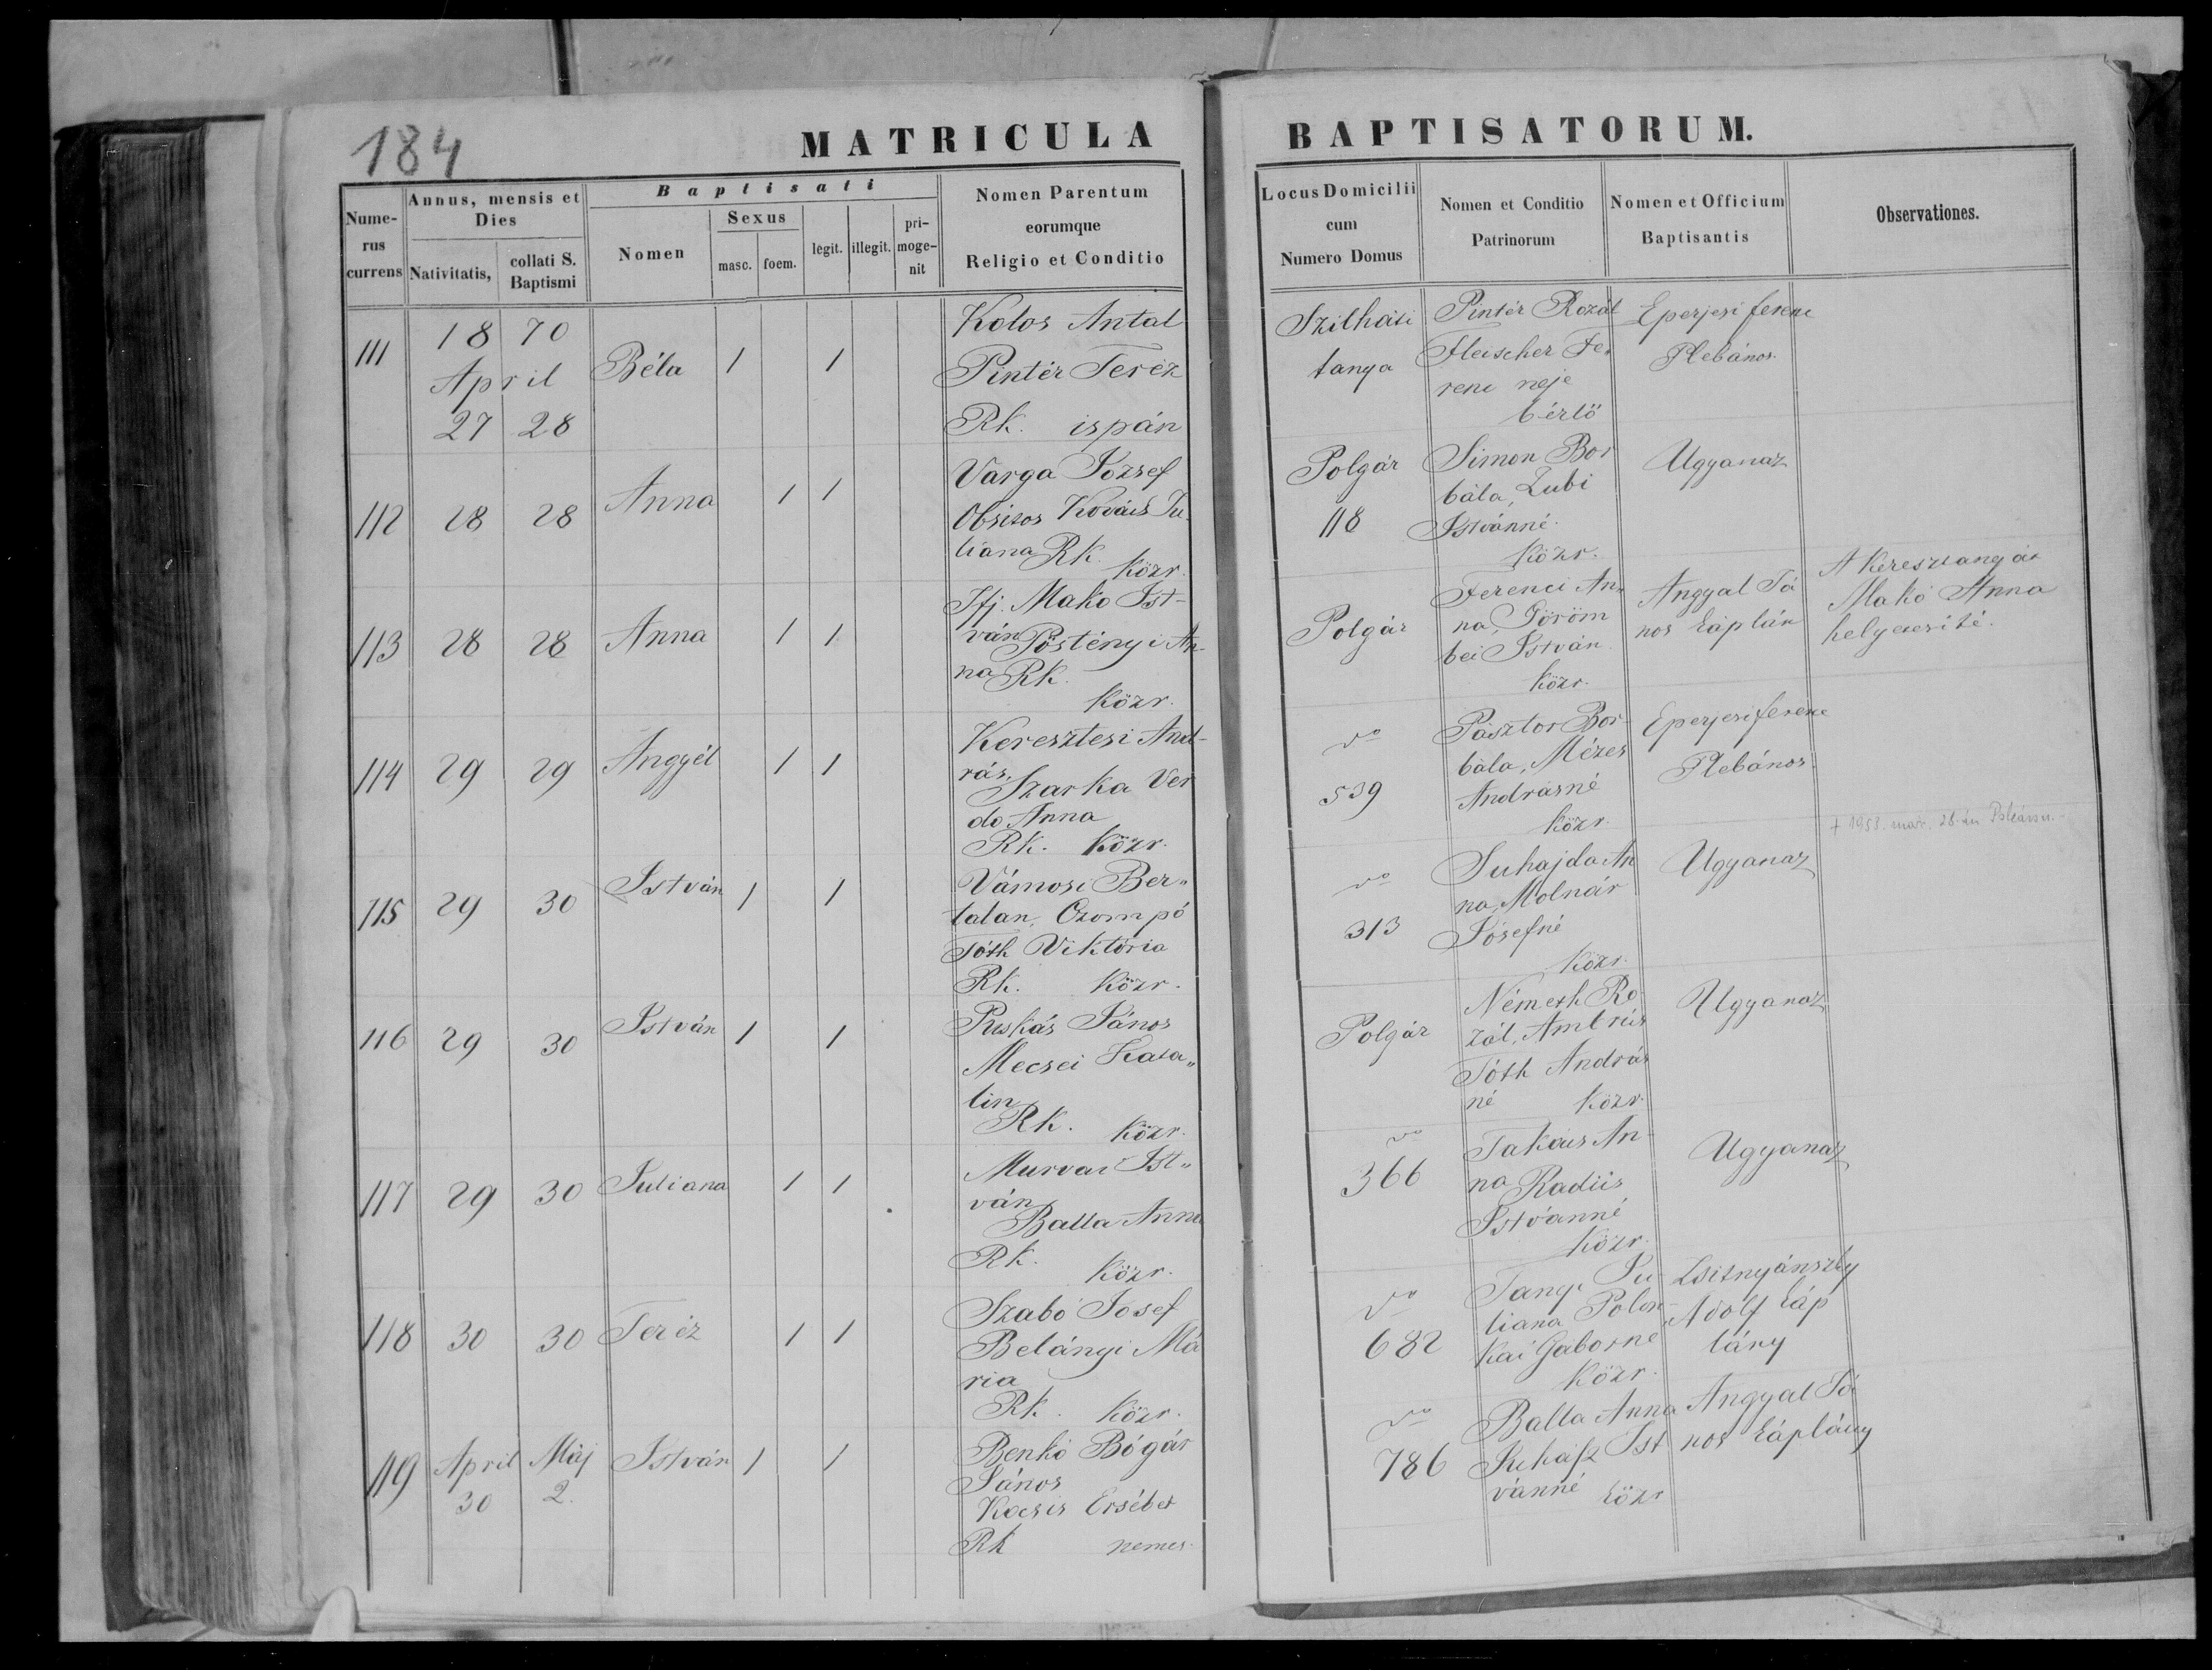 184
MATRICULA BAPTISATORUM.
Numerus currens | Annus, mensis et Dies | Baptisati | Nomen Parentum eorumque Religio et Conditio | Locus Domicilii cum Numero Domus | Nomen et Conditio Patrinorum | Nomen et Officium Baptisantis | Observationes.
Nativitatis, | collati S. Baptismi | Nomen | Sexus | masc. | foem. | legit. | illegit. | primogenit
111
18 70
April
27 28
Béla 1 1
Kolos Antal
Pintér Teréz
Rk. ispán
Szilhási
tanya
Pintér Rozál
Fleischer Fe,
renc neje
bérlő
Eperjesi ferenc
Plebános
112 28 28 Anna 1 1
Varga József
Obsitos Kovács Ju
liana Rk.
közr.
Polgár
118
Simon Bor
bála, Zubi
Istvánné
közr.
Ugyanaz
113 28 28 Anna 1 1
Ifj. Makó Ist-
ván Pöstényi An-
na Rk.
közr.
Polgár
Ferenci An,
na, Göröm
bei István
közr.
Angyal Já
nos káplán
A keresztanyát
Makó Anna
helyetesité.
114 29 29 Angyél 1 1
Keresztesi And-
rás,
Szarka Ver
do Anna
Rk. közr.
do
539
Pásztor Bor-
bála, Mézes
Andrásné
közr.
Eperjesi ferenc
Plebános
† 1953. mar. 28-án
115 29 30 István 1 1
Vámosi Ber,,
talan, Czompó
Tóth Viktória
Rk. közr.
do
313
Suhajda An
na, Molnár
Jósefné
közr.
Ugyanaz
116 29 30 István 1 1
Puskás János
Mecsei Kata,,
lin
Rk. közr.
Polgár
Németh Ro
zál, Ambrús
Tóth András
né közr.
Ugyanaz
117 29 30 Juliana 1 1
Murvai Ist,,
ván
Balla Anna
Rk. közr.
do
366
Takács An
na Radics
Istvánné
közr.
Ugyanaz
118 30 30 Teréz 1 1
Szabó Josef
Belányi Má
ria
Rk. közr.
do
682
Tangi Ju
liana Polon-
kai Gaborne
közr.
Zsitnyánszky
Adolf káp
lány
119
April Máj
30 2.
István 1 1
Benkó Bógár
János
Kocsis Ersébet
Rk nemes
do
786
Balla Anna
Juhász Ist
vánné közr
Angyal Já
nos káplány